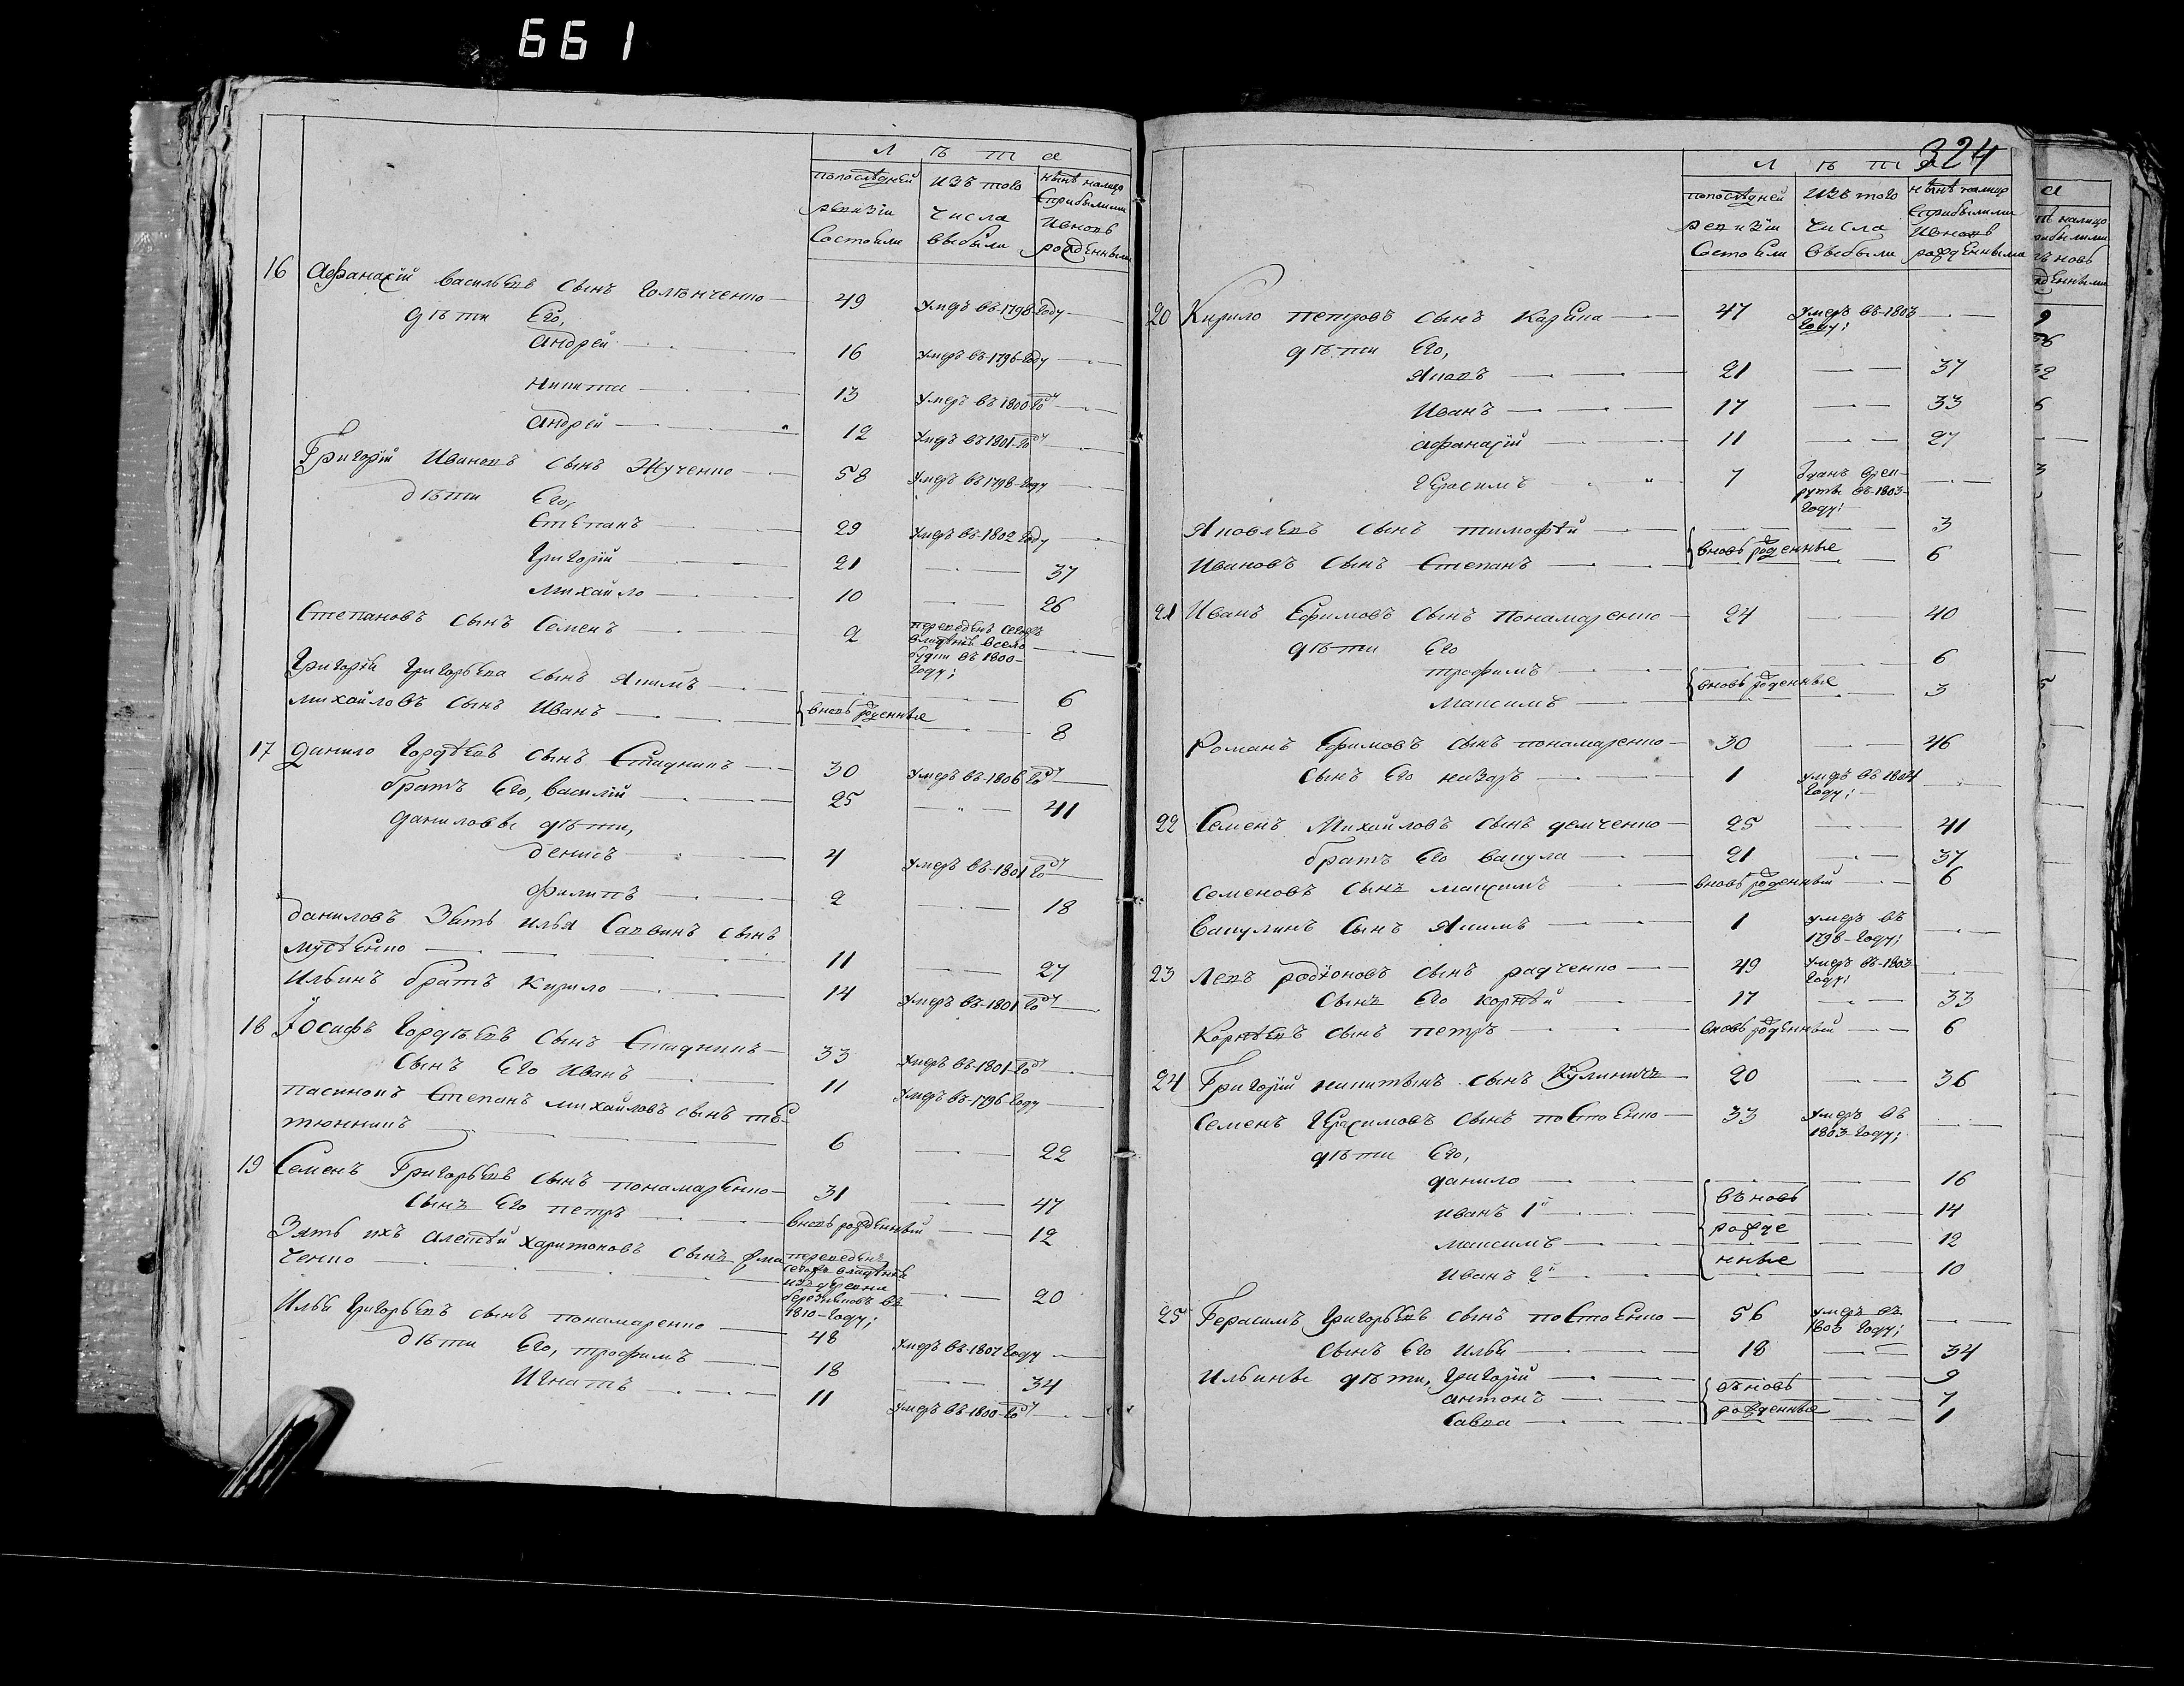 661
Л ѣ т а
попослѣдней ревизiи состояли
изъ того числа выбыли
нынѣ налицо сприбылыми ивновь рожденными
16 Афанасiй васильевъ сынъ Голѣнченко — 49 умеръ въ-1798-году —
дѣти Его,
Андрей — 16 умеръ въ-1796-году —
никита — 13 умеръ въ 1800 году —
Андрей — 12 умеръ въ 1801-году —
Григорiй Ивановъ сынъ Жученко — 58 умеръ въ 1798-году —
дѣти Его,
Степанъ — 29 умеръ въ-1802 году —
Григорiй — 21 — 37
михайло — 10 — 26
Степановъ сынъ Семенъ — 2 переведенъ
въ 1800-
году;
Григорiя Григорьева сынъ Якимъ — 6
вновь рожденные
михайловъ сынъ Иванъ — 8
17 данило Гордѣевъ сынъ Стадникъ — 30 умеръ въ-1806 году —
братъ Его, василiй — 25 — 41
даниловы дѣти,
денисъ — 4 умеръ въ-1801 году —
филипъ — 2 — 18
даниловъ Зять илья Савинъ сынъ
мусѣенко — 11 — 27
Ильинъ братъ кирило — 14 умеръ въ-1801 году —
18 Iосифъ Гордѣевъ сынъ Стадникъ — 33 умеръ въ-1801-году —
сынъ Его Иванъ — 11 умеръ въ-1796-году —
пасинокъ Степанъ михайловъ сынъ
6 — 22
19 Семенъ Григорьевъ сынъ пономаренко — 31 — 47
сынъ Его петръ — вновь рожденный — 12
Зять ихъ Алексѣй харитоновъ сынъ
ченко — переведенъ
из деревни
въ
1810-году; — 20
Илья Григорьевъ сынъ пономаренко — 48 умеръ въ-1807 году —
дѣти Его, трофимъ — 18 — 34
Игнатъ — 11 умеръ въ-1800-году —
324
Л ѣ т
попослѣдней ревизiи состояли
изъ того числа выбыли
нынѣ налицо сприбылыми ивновь рожденными
20 Кирило петровъ сынъ — 47 умеръ въ-1803
году; —
дѣти Его,
Яковъ — 21 — 37
Иванъ — 17 — 33
афанасiй — 11 — 27
Герасимъ — 7 зданъ врек-
руты въ-1803-
году; —
Яковлевъ сынъ тимофѣй — 3
вновь рожденные
Ивановъ сынъ Степанъ — 6
21 Иванъ Ефимовъ сынъ Пономаренко — 24 — 40
дѣти Его
трофимъ — 6
вновь рожденные
максимъ — 3
Романъ Ефимовъ сынъ пономаренко — 30 — 46
сынъ Его назаръ — 1 умеръ въ 1804
году; —
22 Семенъ Михайловъ сынъ демченко — 25 — 41
братъ Его вакула — 21 — 37
семеновъ сынъ максимъ — вновь рожденный — 6
вакулинъ сынъ Якимъ — 1 умеръ въ
1798-году; —
23 Левъ родiоновъ сынъ радченко — 49 умеръ въ-1803
году; —
сынъ Его корнѣй — 17 — 33
Корнѣевъ сынъ петръ — вновь рожденный — 6
24 Григорiй никитинъ сынъ Кулиничъ — 20 — 36
семенъ Герасимовъ сынъ постоенко — 33 умеръ въ
1803-году; —
дѣти Его,
данило — 16
вѣновь
иванъ 1й — 14
рожде
максимъ — 12
нные
иванъ 2й — 10
25 Герасимъ Григорьевъ сынъ постоенко — 56 умеръ въ
1803 году; —
сынъ Его Илья — 18 — 34
Ильины дѣти, Григорiй — 9
вѣновь
антонъ — 7
рожденные
Савва — 1